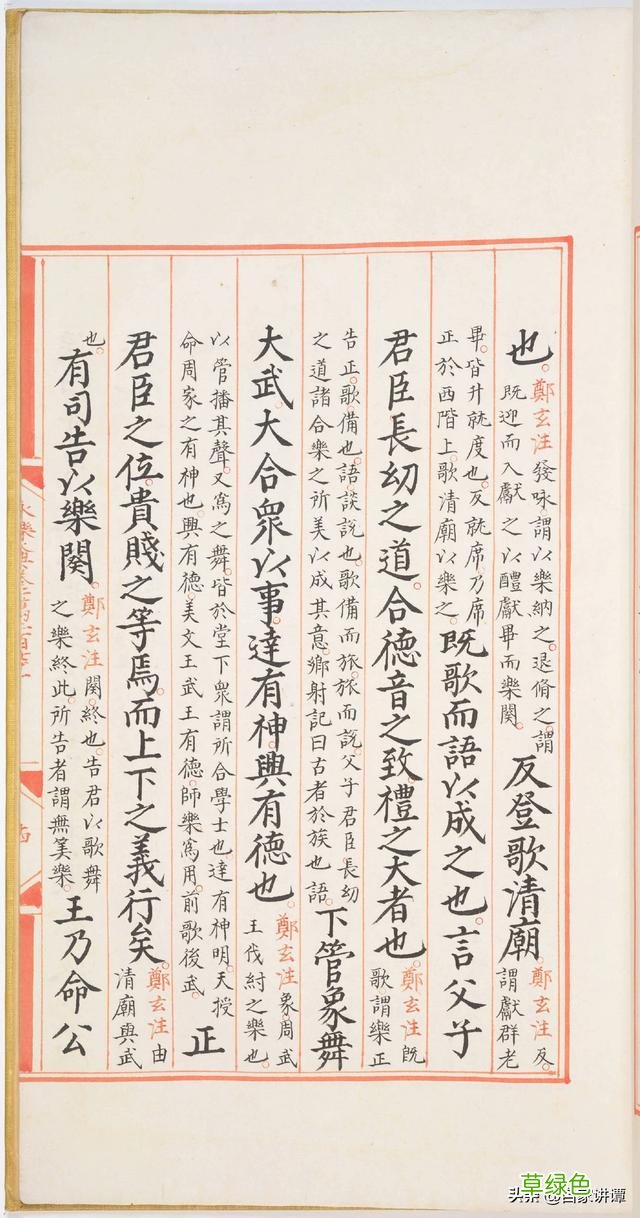 也。鄭玄注發咏謂以樂納之。退脩之謂既迎而入獻之以醴獻畢而樂闋。反登歌清廟。鄭玄注反。謂獻群老
畢。皆升就度也。反就席。乃席正於西階上。歌清廟以樂之。既歌而語以成之也。言父子
君臣長幼之道。合德音之致禮之大者也。鄭玄注既歌。謂樂正
告正歌備也。語談說也。歌備而旅。旅而說。父子君臣長幼之道諸合樂之所美以成其意。鄉射記曰古者於族也語。下管象舞
大武。大合眾以事。達有神。興有德也。鄭玄注象。周武王伐紂之樂也。
以管播其聲。又為之舞。皆於堂下眾謂所合學士也。達有神明。天授命周家之有神也。興有德。美文王武王有德。師樂為用。前歌後武。正
君臣之位。貴賤之等焉。而上下之義行矣。鄭玄注由清廟與武
也。有司告以樂闋。鄭玄注闋。終也。告君以歌舞之樂終此。所告者謂無筭樂。王乃命公
草绿色